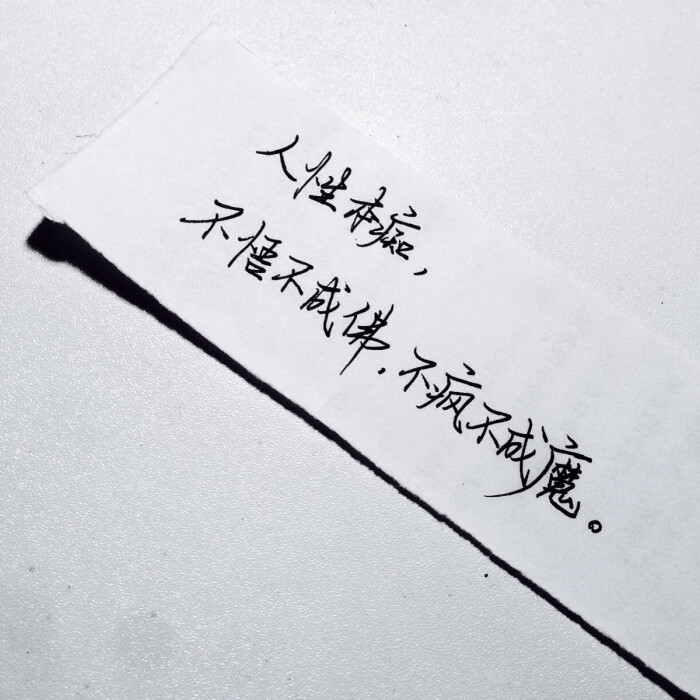 人性本痴，
不悟不成佛．不疯不成魔。